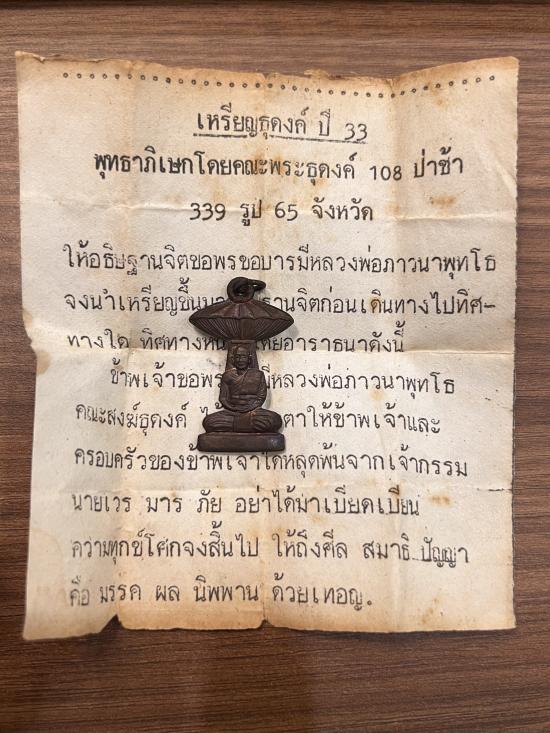 เหรียญธุดงค์ ปี 33
พุทธาภิเษกโดยคณะพระธุดงค์ 108 ป่าช้า
339 รูป 65 จังหวัด
ให้อธิษฐานจิตขอพรขอบารมีหลวงพ่อภาวนาพุทโธ
จงนำเหรียญขึ้นมา านจิตก่อนเดินทางไปทิศ-
ทางใด ทิศทางหน อาราธนาดังนี้
ข้าพเจ้าขอพร มีหลวงพ่อภาวนาพุทโธ
คณะสงฆ์ธุดงค์ ตาให้ข้าพเจ้าและ
ครอบครัวของข้าพเจ้าได้หลุดพ้นจากเจ้ากรรม
นายเวร มาร ภัย อย่าได้มาเบียดเบียน
ความทุกข์โศกจงสิ้นไป ให้ถึงศีล สมาธิ ปัญญา
คือ มรรค ผล นิพพาน ด้วยเทอญ.